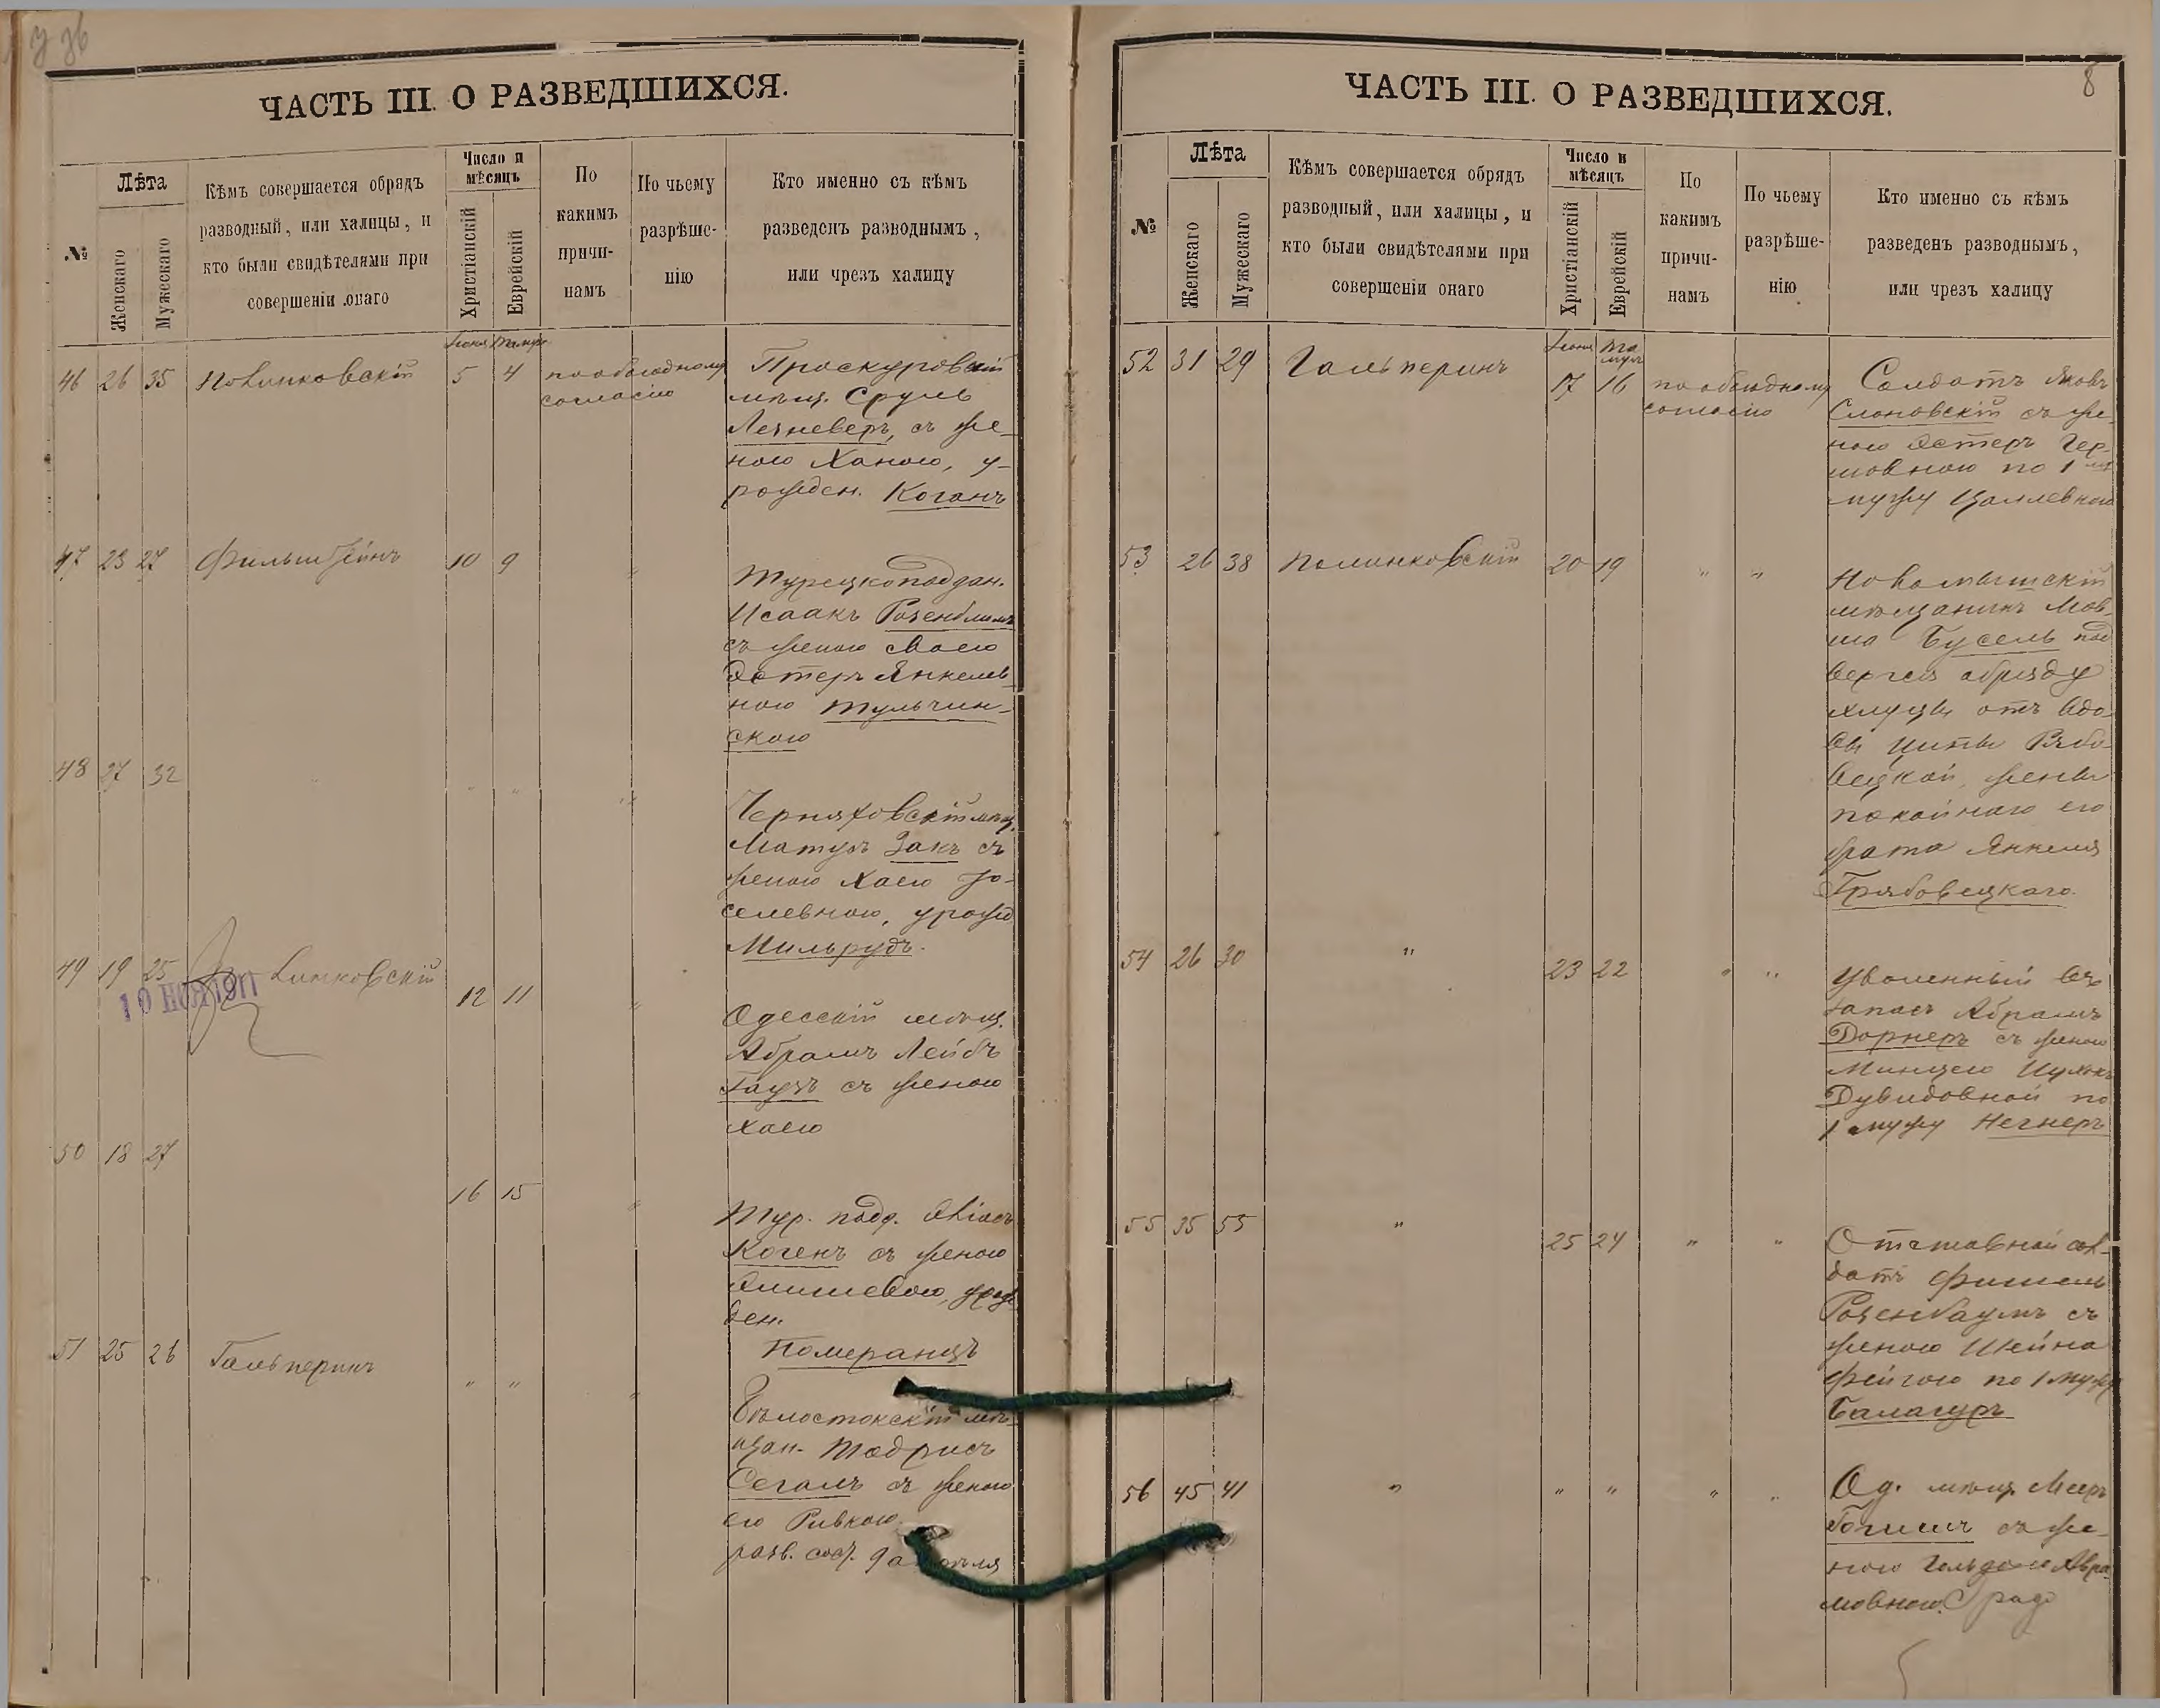 ЧАСТЬ III. О РАЗВЕДШИХСЯ.
№
Лѣта
Женскаго
Мужескаго
Кѣмъ совершается обрядъ
разводный, или халицы, и
кто были свидѣтелями при
совершеніи онаго
Число и
мѣсяцъ
Христіанскій
Еврейскій
По
какимъ
причи-
намъ
По чьему
разрѣше-
нію
Кто именно съ кѣмъ
разведенъ разводнымъ,
или чрезъ халицу
46 26 35 5 4 по обоюдному
согласію
Проскуровскій
мѣщ. Сруль
съ же-
ною Ханою, у-
рожден. Коганъ
47 23 27 Фильштейнъ 10 9 "
Турецкоподдан.
Исаакъ Розенблюмъ
съ женою своею
Эстеръ Янкелев-
ною Тульчин-
скою
48 27 32 " " " "
Черняховскій мѣщ.
Матусъ Закъ съ
женою Хаею Іо-
селевною, урожд
Мильрудъ.
49 19 25 12 11 "
10 НОЯ 1911
Одесскій мѣщ.
Абрамъ Лейбъ
Гаузъ съ женою
Хаею
50 18 27 16 15 "
Тур. подд.
Когенъ съ женою
ден.
Померанцъ
51 25 26 Гальперинъ " " "
Бѣлостокскій мѣ-
щан. Тодрисъ
Сегаль съ женою
его Ривкою.
ЧАСТЬ III. О РАЗВЕДШИХСЯ.
8
№
Лѣта
Женскаго
Мужескаго
Кѣмъ совершается обрядъ
разводный, или халицы, и
кто были свидѣтелями при
совершеніи онаго
Число и
мѣсяцъ
Христіанскій
Еврейскій
По
какимъ
причи-
намъ
По чьему
разрѣше-
нію
Кто именно съ кѣмъ
разведенъ разводнымъ,
или чрезъ халицу
52 31 29 Гальперинъ 17 16 по обоюдному
согласію
Солдатъ Яковъ
Слоновскій съ же-
ною Эстеръ Гер-
шовною по 1
мужу
53 26 38 Полинковскій 20 19 " "
мѣщанинъ Мов
ша Бусель под
вергся обряду
халицы отъ вдо-
вы Циты Рябо-
вецкой, жены
покойнаго его
брата Янкеля
Грябовецкаго.
54 26 30 " 23 22 " "
Уволенный въ
запасъ Абрамъ
Дорнеръ съ женою
Дувидовной по
1 мужу Негнеръ
55 35 55 " 25 24 " "
Отставной сол-
датъ Фишель
Розенбаумъ съ
женою Шейна
Фейгою по 1 мужу
Балагуръ
56 45 41 " " " " "
Од. мѣщ. Мееръ
съ же-
ною Гольдою Абра-
мовною.